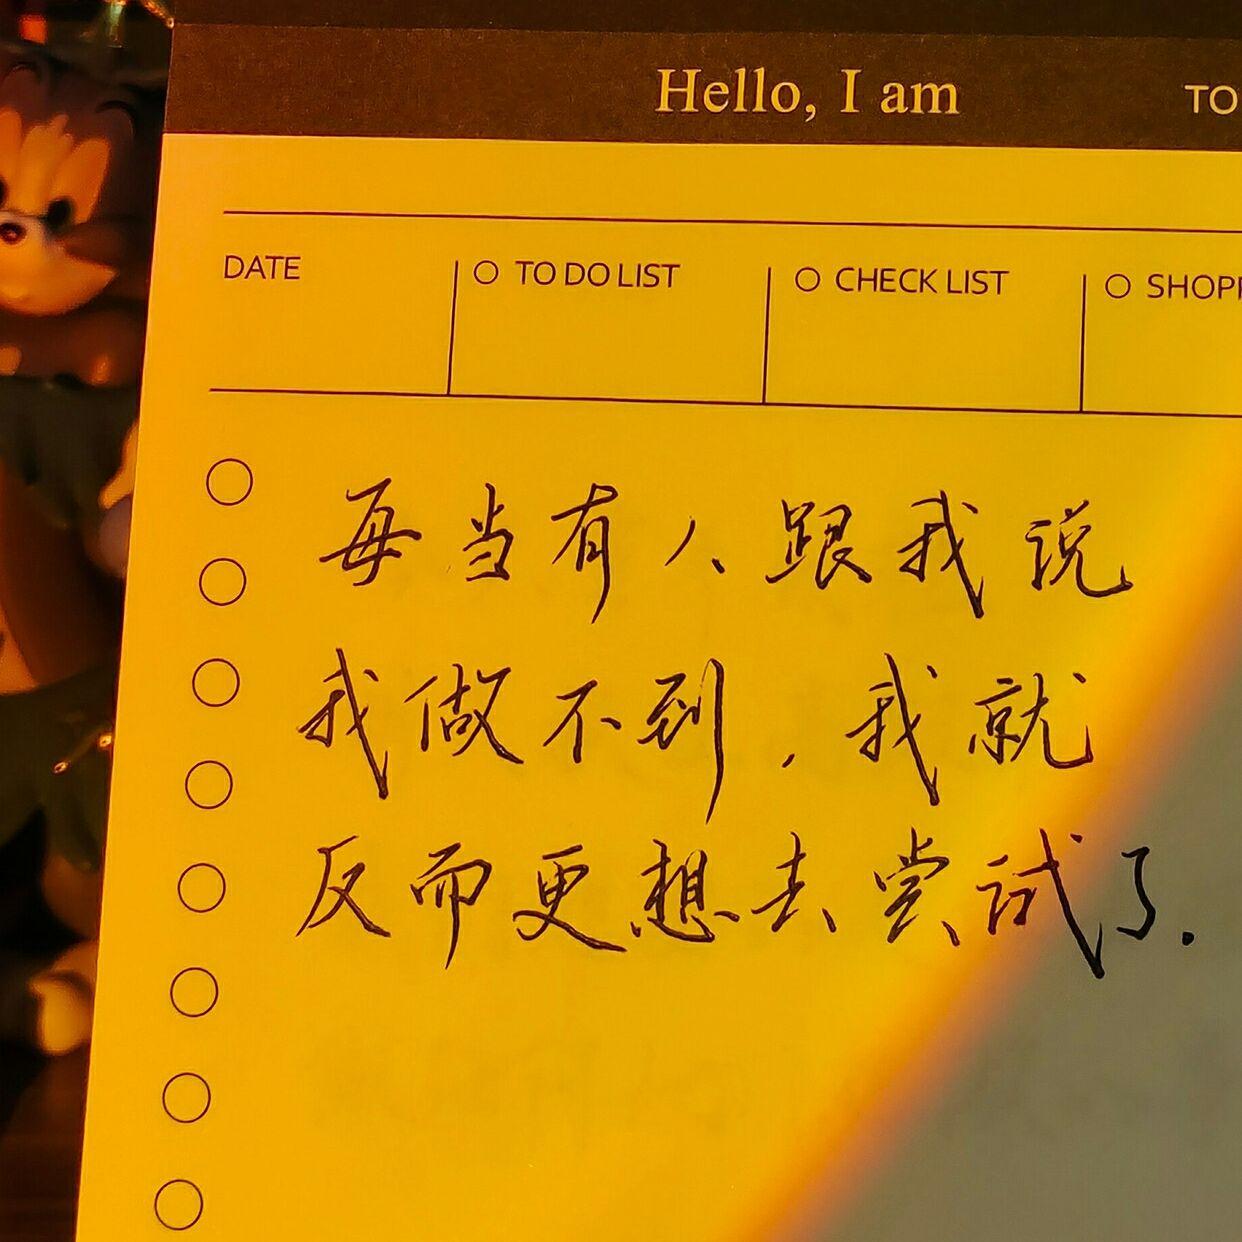 Hello, I am
TO
DATE
TO DO LIST
CHECK LIST
SHOPP
每当有人跟我说
我做不到，我就
反而更想去尝试了.